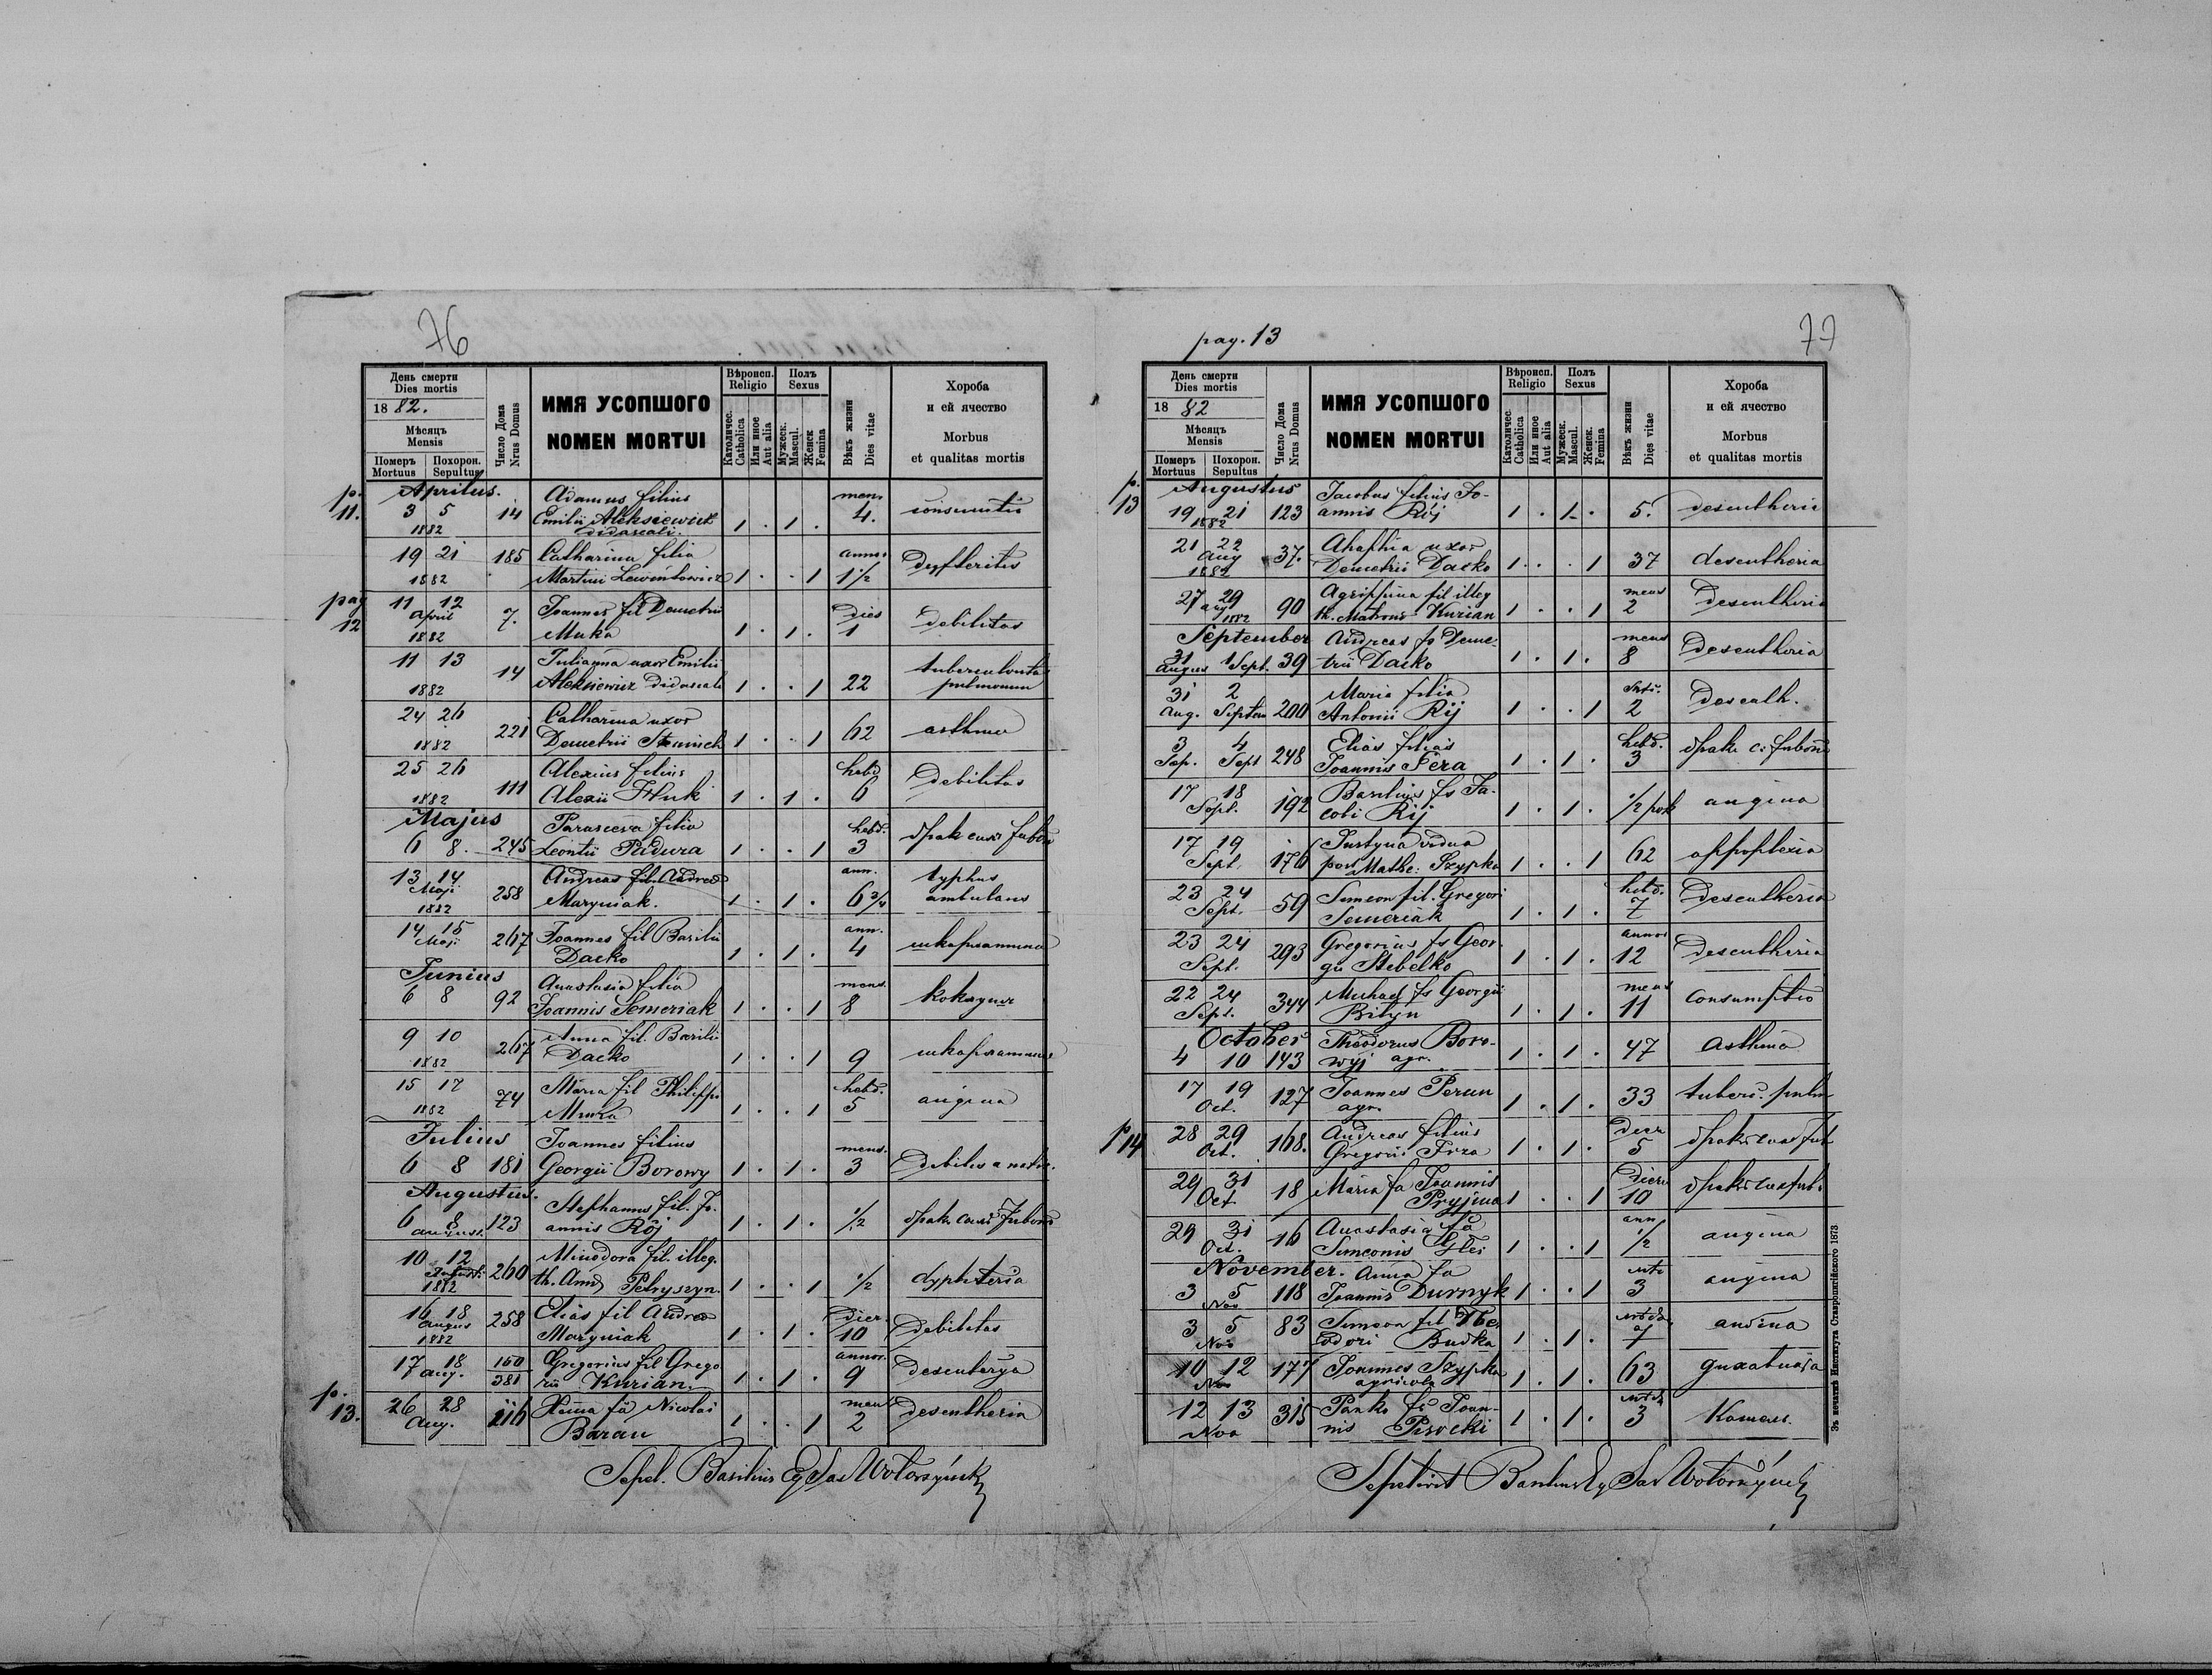 76
День смерти
Dies mortis
1882.
Мѣсяцъ
Mensis
Померъ Похорон.
Mortuus Sepultus
Число Дома
Nrus Domus
ИМЯ УСОПШОГО
NOMEN MORTUI
Вѣроисп.
Religio
Католичес.
Catholica
Или иное
Aut alia
Полъ
Sexus
Мужеск.
Mascul.
Женск
Femina
Вѣкъ жизни
Dies vitae
Хороба
и ей ячество
Morbus
et qualitas mortis
p. 11.
Aprilus. Adamus filius mens
3 5 14 Emilii Aleksiewicz 1 . 1 . 4.
1882 didascali.
19 21 185 Catharina filia annor
1882 Martini Lewintowicz 1 . . 1 1½ Dyfteritis
pag 12
11 12 7. Joannes fil Demetrii Dies
April Muka 1 . 1 . 1 Debilitas
1882
11 13 14 Julianna uxor Emilii
1882 Aleksiewicz Didascali 1 . . 1 22 pulmonum
24 26 221 Catharina uxor
1882 Demetrii 1 . . 1 62 asthma
25 26 111 Alexius filius hebd
1882 Alexii Huk 1 . 1 . 6 Debilitas
Majus Parasceva filia hebd.
6 8. 245 Leontii Padura 1 . . 1 3
13 14 258 Andreas fil. Andreæ ann. typhus
Maji Maryniak. 1 . 1 . 6¾ ambulans
1882
14 15 267 Joannes fil Basilii ann.
Maji Dacko 1 . 1 . 4 шкарлатина
Junius Anastasia filia mens.
6 8 92 Joannis Semeriak 1 . . 1 8
9 10 267 Anna fil. Basilii
1882 Dacko 1 . . 1 9 шкарлатина
15 17 74 Maria fil Philippi hebd.
1882 1 . . 1 5 angina
Julius Joannes filius mens.
6 8 181 Georgii Borowy 1 . 1 . 3 Debilis a
Augustus. Stephanus fil. Jo-
6 8 123 annis Rój 1 . 1 . ½
August.
10 12 260 Minodora fil. illeg.
August. th. Annæ Petryszyn. 1 . . 1 ½ dyphteria
1882
16 18 258 Elias fil Andreæ Dier.
Augus Maryniak 1 . 1 . 10 Debilitas
1882
17 18 160 Gregorius fil Grego annor.
Aug. 381 rii Kurian. 1 . 1 . 9 Desenterya
p. 13.
26 28 216 fa Nicolai mens
Aug. Baran 1 . . 1 2 Desentheria
Sepel. Basilius Sas
pag. 13
77
День смерти
Dies mortis
1882
Мѣсяцъ
Mensis
Померъ Похорон.
Mortuus Sepultus
Число Дома
Nrus Domus
ИМЯ УСОПШОГО
NOMEN MORTUI
Вѣроисп.
Religio
Католичес
Catholica
Или иное
Aut alia
Полъ
Sexus
Мужеск.
Mascul.
Женск.
Femina
Вѣкъ жизни
Dies vitae
Хороба
и ей ячество
Morbus
et qualitas mortis
p. 13
Augustus Jacobus filius Jo-
19 21 123 annis Rój 1 . 1 . 5. desentheria
1882
21 22 37. Ahaphia uxor
Aug Demetrii Dacko 1 . . 1 37 desentheria
1882
27 29 90 Agrippina fil illeg mens
Aug 1882 th. Matronæ Kurian 1 . . 1 2 Desentheria
September Andreas fs Deme- mens
31 Augus 1 Sept. 39 trii Dacko 1 . 1 . 8 Desentheria
31 2 Maria filia
Aug. Septem 200 Antonii Rij 1 . . 1 2 Desenth.
3 4 248 Elias filius hebd.
Sep. Sept Joannis Pera 1 . 1 . 3
17 18 192 Basilius fs Ja-
Sept. cobi Rij 1 . 1 . ½ рок angina
17 19 176 Justyna vidua
Sept. post Mathe: Szypka 1 . . 1 62 appoplexia
23 24 59 Simeon fil. Gregori hebd.
Sept. Semeriak 1 . 1 . 7 Desentheria
23 24 293 Gregorius fs Geor- annor
Sept. gii Stebelko 1 . 1 . 12 Desentheria
22 24 344 Michael fs Georgii mens
Sept. Bityn 1 . 1 . 11 Consumptio
October Theodorus Boro-
4 10 143 wyj agr. 1 . 1 . 47 Asthma
17 19 127 Joannes Perun
Oct. agr. 1 . 1 . 33 tuberc. pulm
p 14
28 29 168. Andreas filius Dier
Oct. Gregorii 1 . 1 . 5
29 31 18 Maria fa Joannis Dieru
Oct Pryjma 1 . . 1 10
29 31 16 Anastasia fa ann
Oct. Simeonis 1 . . 1 ½ angina
November. Anna fa
3 5 118 Joannis Durnyk 1 . . 1 3 angina
Nov
3 5 83 Simeon fil The-
Nov odori Budka 1 . 1 . 7 angina
10 12 177 Joannes Szypka
Nov agricola 1 . 1 . 63
12 13 315 Panko fs Joan-
Nov nis Pisocki 1 . 1 . 3
Sepelivit Basilius Sas
Зъ печатнѣ Института Ставропигійского 1873